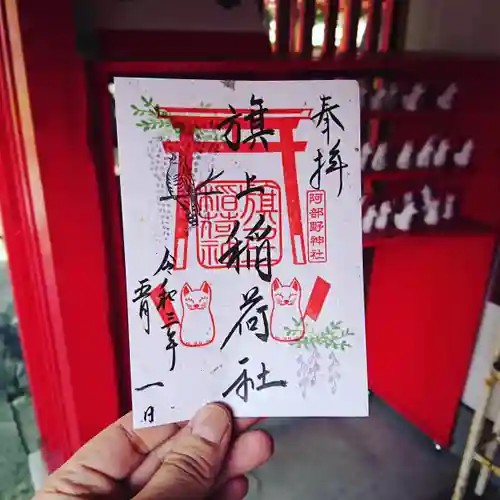 奉拝
阿部野神社
旗上稲荷社
旗上
稲荷社
令和三年
五月
一日